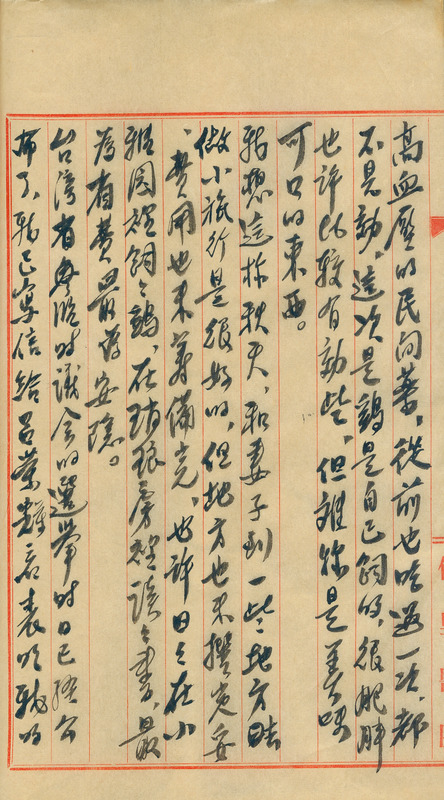 高血壓的民間葯，從前也吃過一次，都
不見効，這次是鷄是自己飼的，很肥胖
也許比較有効些，但雖妳是美味
可口的東西。
我想這樣秋天，和妻子到一些地方去
做小旅行是很好的，但地方也未擇定妥
、費用也未籌備完，也許日日在小
雅園裡飼飼鷄，在琅琅房裡讀讀書，最
為省費最為安穩。
台灣省臨時議會的選舉時日已經公
佈了，我已寫信給呂榮輝君表明我的